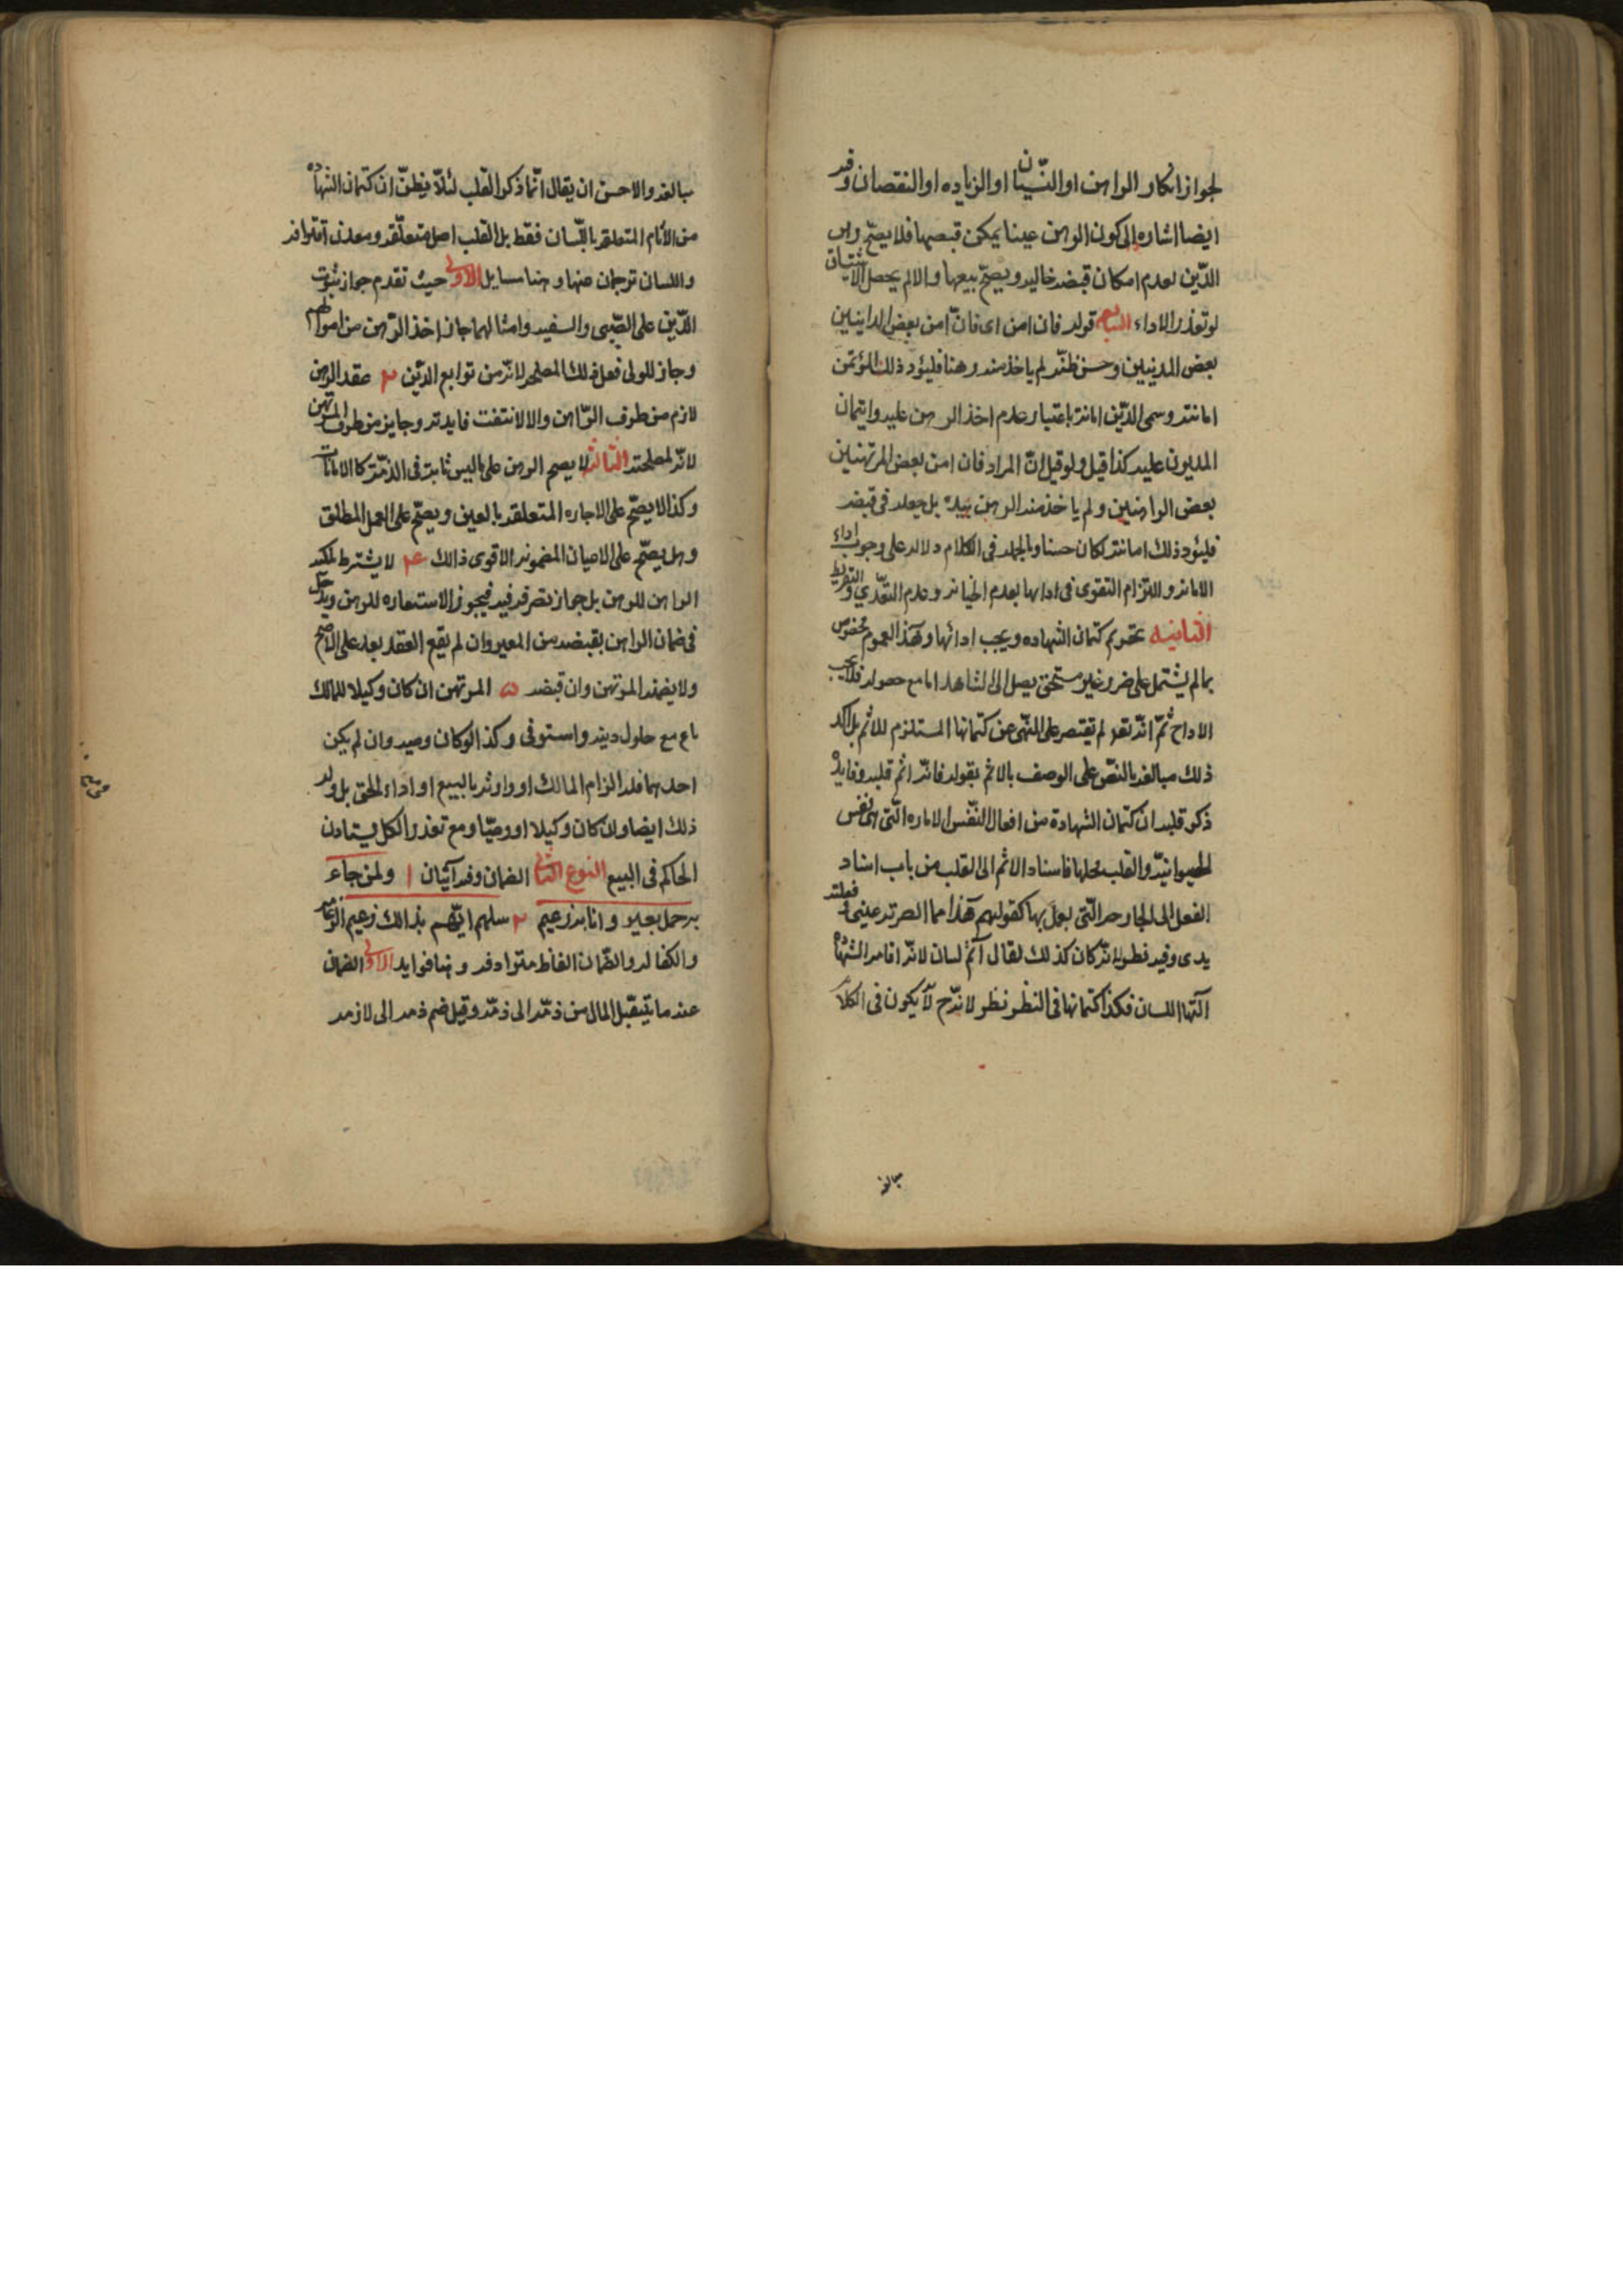 لجواز انكار الراهن او النسيان او الزياده او النقصان وفيه
ايضا اشاره الى كون الرهن عينا يمكن قبضها فلا يصحّ رهن
الدّين لعدم امكان قبضه خاليه ويصحّ بيعها والا لم يحصل الاستيثاق
لو تعذر الاداء السابع قوله فان امن اى فانّ امن بعض الداينين
بعض المدينين وحسن ظنّه لم ياخذ منه رهنا فليؤد ذلك المؤتمن
امانته وسمى الدّين امانة باعتبار عدم اخذ الرهن عليه وايتمان
المديون عليه كذا قيل ولو قيل انّ المراد فان امن بعض المرتهنين
بعض الراهنين ولم ياخذ منه الرهن بيده بل جعله فى قبضه
فليؤد ذلك امانته لكان حسنا وبالجمله فى الكلام دلاله على وجوب اداء
الامانه والتزام التقوى فى ادايها بعدم الخيانه وعدم التعّدي والتفريط
الثانيه تحريم كتمان الشهاده ويجب ادائها وهذا العموم مخصوص
بما لم يشتمل على ضرر غير مستحق يصل الى الشاهد اما مع حصوله فلا يجب
الاداح ثمّ انّه تع لم يقتصر على النّهى عن كتمانها المستلزم للاثم بل اكد
ذلك مبالغه بالنصّ على الوصف بالاثم بقوله فانّه اثم قلبه وفايدة
ذكر قلبه ان كتمان الشهادة من افعال النّفس الاماره الّتى هى نفس
الحيوانيّه والقلب محلها فاسناد الاثم الى القلب من باب اسناد
الفعل الى الجارحه الّتى يعمل بها كقولهم هذا مما ابصرته عينى وفعلته
يدى وفيه نظر لانّه كان كذلك لقال آثم لسان لانّه اقامه الشهادة
آلتها اللسان فكذا كتمانها فى النظر نظر لانّه ح لا يكون فى الكلام
مبالغه
مبالغه والاحسن ان يقال انّما ذكر القلب لئلّا يظنّ ان كتمان الشهادة
من الآثام المتعلقه باللّسان فقط بل القلب اصل متعلّقه ومعدن اقترافه
واللسان ترجمان عنها وهنا مسايل الاولى حيث تقدم جواز ثبوت
الدّين على الصّبى والسفيه وامثالهما جاز اخذ الرّهن من اموالهم
وجاز للولى فعل ذلك للمصلحه لانّه من توابع الدّين ٢ عقد الرهن
لازم من طرف الرّاهن والا لانتفت فايدته وجايز من طرف المرتهن
لانّه لمصلحته الثالثه لا يصح الرهن على ما ليس ثابتة فى الذمّة كالامانات
وكذا لا يصّح على الاجاره المتعلقه بالعين ويصّح على العمل المطلق
وهل يصّح على الاعيان المضمونه الاقوى ذالك ٤ لا يشترط تملكه
الراهن للرهن بل جواز تصرفه فيه فيجوز الاستعاره للرهن ويدخل
فى ضمان الراهن بقبضه من المعير وان لم يقع العقد بعد على الاصّح
ولا يضمنه المرتهن وان قبضه ٥ المرتهن ان كان وكيلا للمالك
باع مع حلول دينه واستوفى وكذا لو كان وصيه وان لم يكن
احدهما فله الزام المالك او وارثه بالبيع او اداء الحق بل وله
ذلك ايضا ولان كان وكيلا او وصيّا ومع تعذر الكل يستاذن
الحاكم فى البيع النوع الثانى الضمان وفيه آيتان ١ ولمن جاء
به حمل بعير وانا به زعيم ٢ سلهم ايّهم بذالك زعيم الزعامه
والكفاله والضّمان الفاظ مترادفه وهنا فوايد الاولى الضمان
عندما يتيقبّل المال من ذمّه الى ذمّه وقيل ضم ذمه الى لازمه